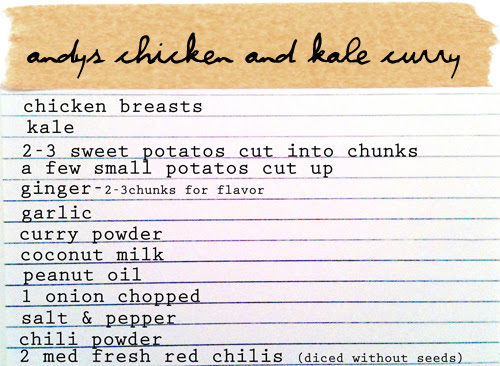 andys chicken and kale curry
chicken breasts
kale
2-3 sweet potatos cut into chunks
a few small potatos cut up
ginger-2-3chunks for flavor
garlic
curry powder
coconut milk
peanut oil
1 onion chopped
salt & pepper
chili powder
2 med fresh red chilis (diced without seeds)